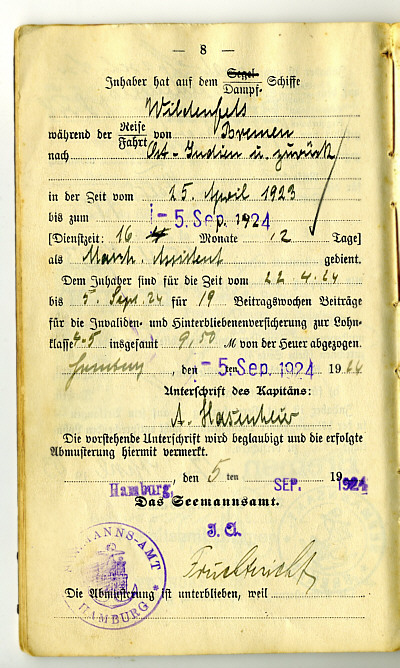 — 8 —
Inhaber hat auf dem Segel- Dampf- Schiffe
Wildenfels
während der Reise Fahrt von Bremen
nach Ost-Indien u. zurück
in der Zeit vom 25. April 1923
bis zum - 5. Sep. 1924
[Dienstzeit: 16 Monate 12 Tage]
als Masch. Assistent gedient.
Dem Inhaber sind für die Zeit vom 22.4.24
bis 5. Sept. 24 für 19 Beitragswochen Beiträge
für die Invaliden- und Hinterbliebenenversicherung zur Lohn-
klasse 4-5 insgesamt 9,50 M von der Heuer abgezogen.
Hamburg, den - 5. Sep. 1924 19 24
Unterschrift des Kapitäns:
A.
Die vorstehende Unterschrift wird beglaubigt und die erfolgte
Abmusterung hiermit vermerkt.
Hamburg, den 5 ten SEP. 19 1924
Das Seemannsamt.
J. A.
SEEMANNS-AMT
HAMBURG
Die Abmusterung ist unterblieben, weil